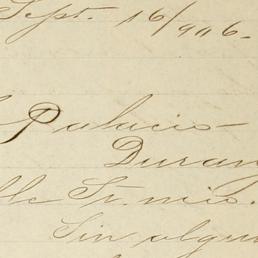 Sept. 16/906.
Palacio
Durang
Sr. mio.
Sin algun